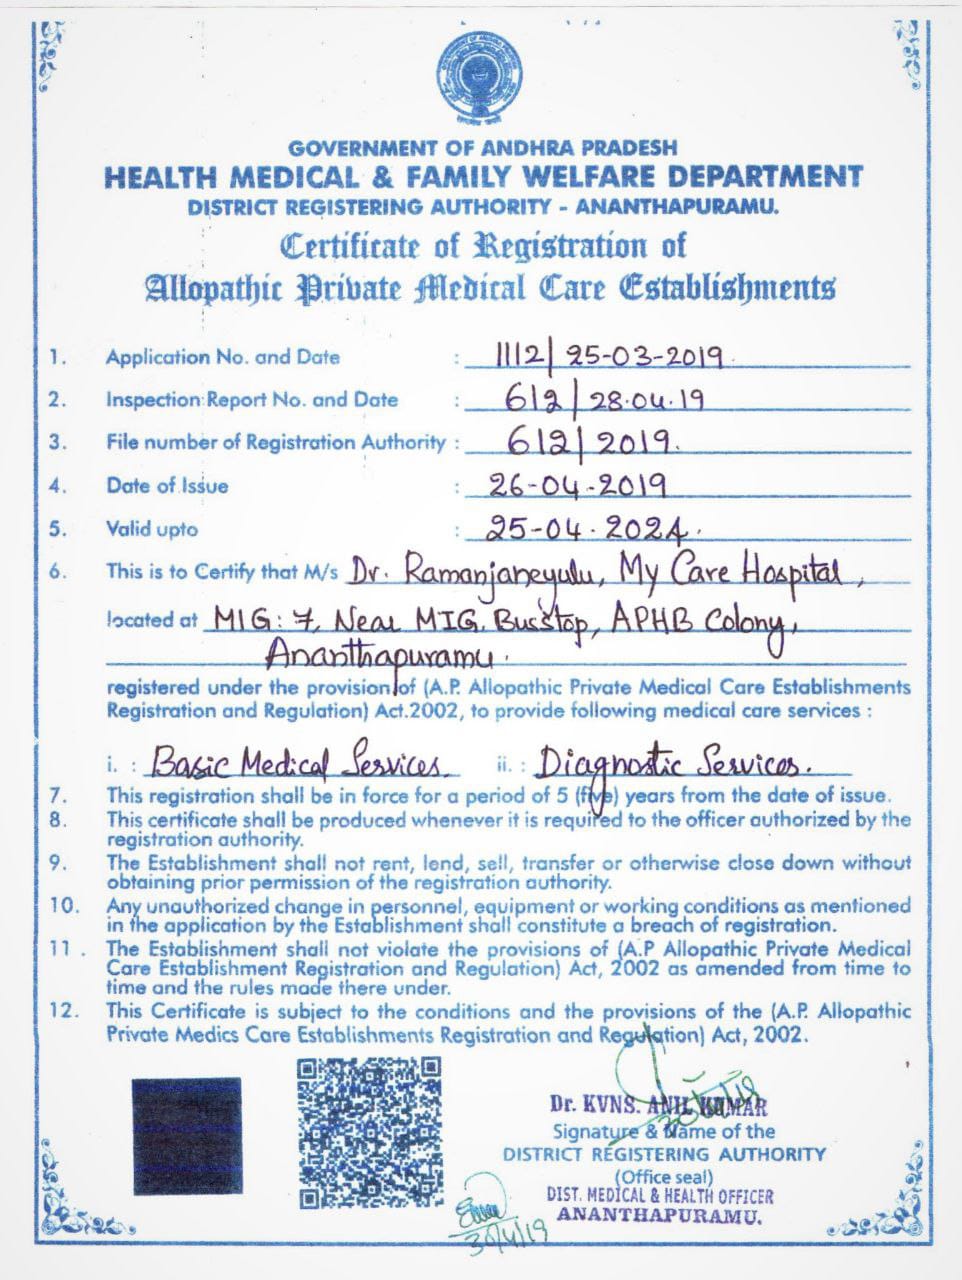 GOVERNMENT OF ANDHRA PRADESH
HEALTH MEDICAL & FAMILY WELFARE DEPARTMENT
DISTRICT REGISTERING AUTHORITY - ANANTHAPURAMU.
Certificate of Registration of
Allopathic Private Medical Care Establishments
1. Application No. and Date : 1112/ 25-03-2019.
2. Inspection Report No. and Date : 612 / 28.04.19
3. File number of Registration Authority : 612/ 2019.
4. Date of Issue : 26-04-2019
5. Valid upto : 25-04-2024.
6. This is to Certify that M/s Dr. Ramanjaneyulu, My Care Hospital,
located at MIG: 7, Near MIG. Busstop, APHB Colony,
Ananthapuramu.
registered under the provision of (A.P. Allopathic Private Medical Care Establishments
Registration and Regulation) Act.2002, to provide following medical care services :
i. : Basic Medical Services. ii. : Diagnostic Services.
7. This registration shall be in force for a period of 5 (five) years from the date of issue.
8. This certificate shall be produced whenever it is required to the officer authorized by the
registration authority.
9. The Establishment shall not rent, lend, sell, transfer or otherwise close down without
obtaining prior permission of the registration authority.
10. Any unauthorized change in personnel, equipment or working conditions as mentioned
in the application by the Establishment shall constitute a breach of registration.
11. The Establishment shall not violate the provisions of (A.P Allopathic Private Medical
Care Establishment Registration and Regulation) Act, 2002 as amended from time to
time and the rules made there under.
12. This Certificate is subject to the conditions and the provisions of the (A.P. Allopathic
Private Medics Care Establishments Registration and Regulation) Act, 2002.
Dr. KVNS. ANIL KUMAR
Signature & Name of the
DISTRICT REGISTERING AUTHORITY
(Office seal)
DIST. MEDICAL & HEALTH OFFICER
ANANTHAPURAMU.
30/4/19